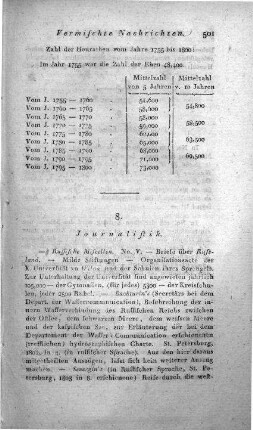 Vermischte Nachrichten. 501
Zahl der Heurathen vom Jahre 1755 bis 1800
Im Jahr 1755 war die Zahl der Ehen 48,400.
Mittelzahl Mittelzahl
von 5 Jahren v. 10 Jahren
Vom J. 1755 — 1760 51,600
Vom J. 1760 — 1765 58,000 54,800
Vom J. 1765 — 1770
Vom J. 1770 — 1775 56,000 58,500
Vom J. 1775 — 1780
Vom J. 1780 — 1785 63,500
Vom J. 1785 — 1790 68,000
Vom J. 1790 — 1795 71,000 69,500
Vom J. 1795 — 1800 73,000
8.
Journalistik.
Russische Miscellen. No. V. — Briefe über Russ-
land. — Milde Stiftungen — Organisationsacte der
K. Universität zu Wilna und der Schulen ihres Sprengels.
Zur Unterhaltung der Universität sind angewiesen jährlich
105,000 — der Gymnasien, (für jedes) 5500 — der Kreisschu-
len, jeder 2500 Rubel. — (Secretärs bei dem
Depart. zur Wassercommunication), Beschreibung der in-
nern Wasserverbindung des Russischen Reichs zwischen
der Ostsee, dem schwarzen Meere, dem weissen Meere
und der kaspischen See, zur Erläuterung der bei dem
Departement der Wasser-Communication erschienenen
(trefflichen) hydrographischen Charte. St. Petersburg,
(in russischer Sprache). Aus den hier daraus
mitgetheilten Auszügen, lässt sich kein weiterer Auszug
machen. — (in Russischer Sprache, St. Pe-
tersburg, 1803 in 8. erschienene) Reise durch die west-